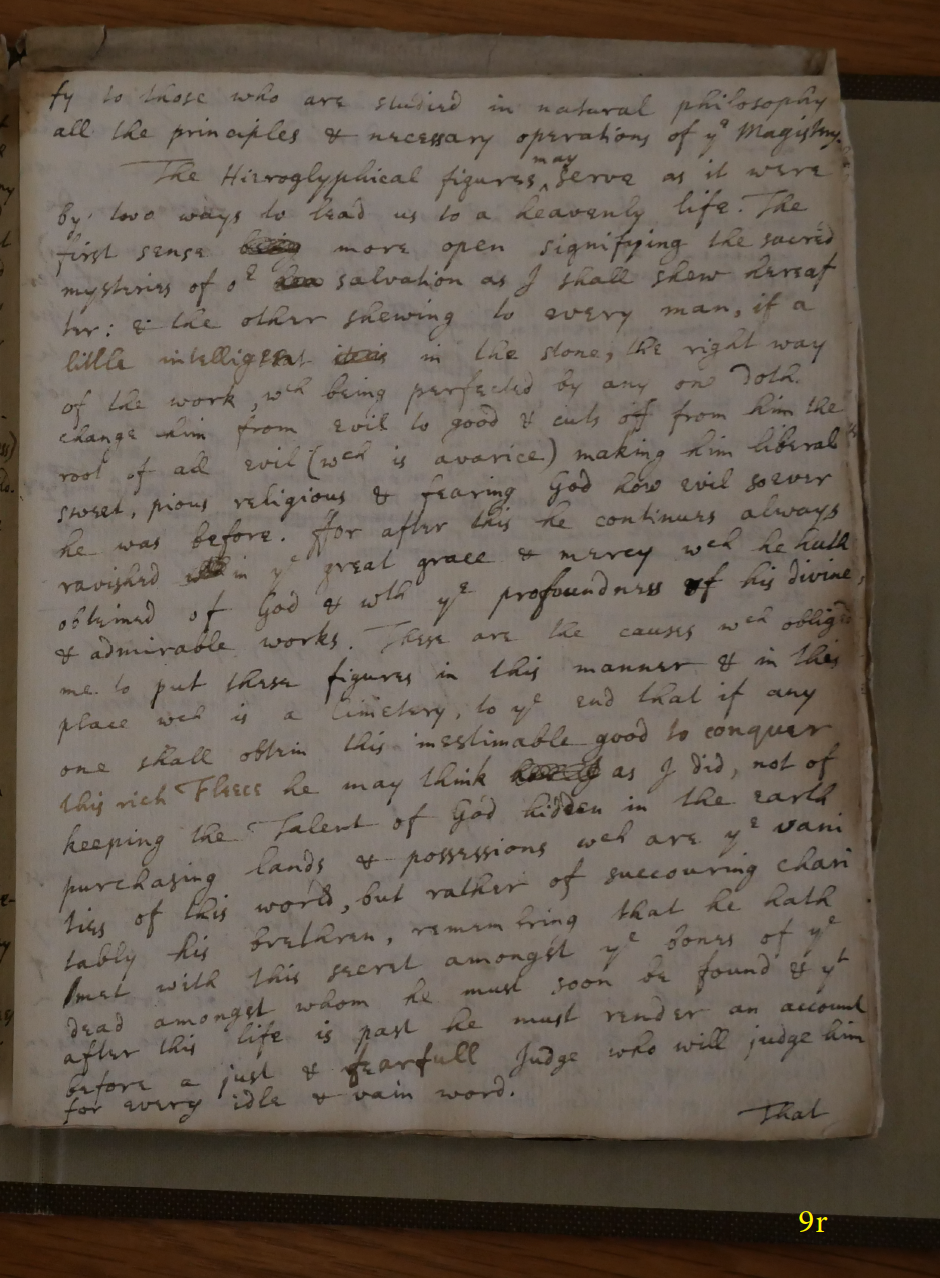 fy to those who are studied in natural philosophy
all the principles & necessary operations of yᵉ Magistery.
The Hieroglyphical figures may serve as it were
by two ways to lead us to a heavenly life. The
first sense being more open signifying the sacred
mysteries of oʳ salvation as I shall shew hereaf
ter: & the other shewing to every man, if a
little intelligent in the stone, the right way
of the work, wᶜʰ being perfected by any one doth
change him from evil to good & cuts off from him the
root of all evil (wᶜʰ is avarice) making him liberal
sweet, pious religious & fearing God how evil soever
he was before. For after this he continues always
ravished in yᵉ great grace & mercy wᶜʰ he hath
obteined of God & wᵗʰ yᵉ profoundness of his divine
& admirable works. These are the causes wᶜʰ obliged
me to put these figures in this manner & in this
place wᶜʰ is a Cimetery, to yᵉ end that if any
one shall obtein this inestimable good to conquer
this rich Fleece he may think as I did, not of
keeping the Talent of God hidden in the earth
purchasing lands & possessions wᶜʰ are yᵉ vani
ties of this world, but rather of succouring chari
tably his brethren, remembring that he hath
met with this secret amongst yᵉ bones of yᵉ
dead amongst whom he must soon be found & yᵗ
after this life is past he must render an account
before a just & fearfull Judge who will judge him
for every idle & vain word.
That
9r